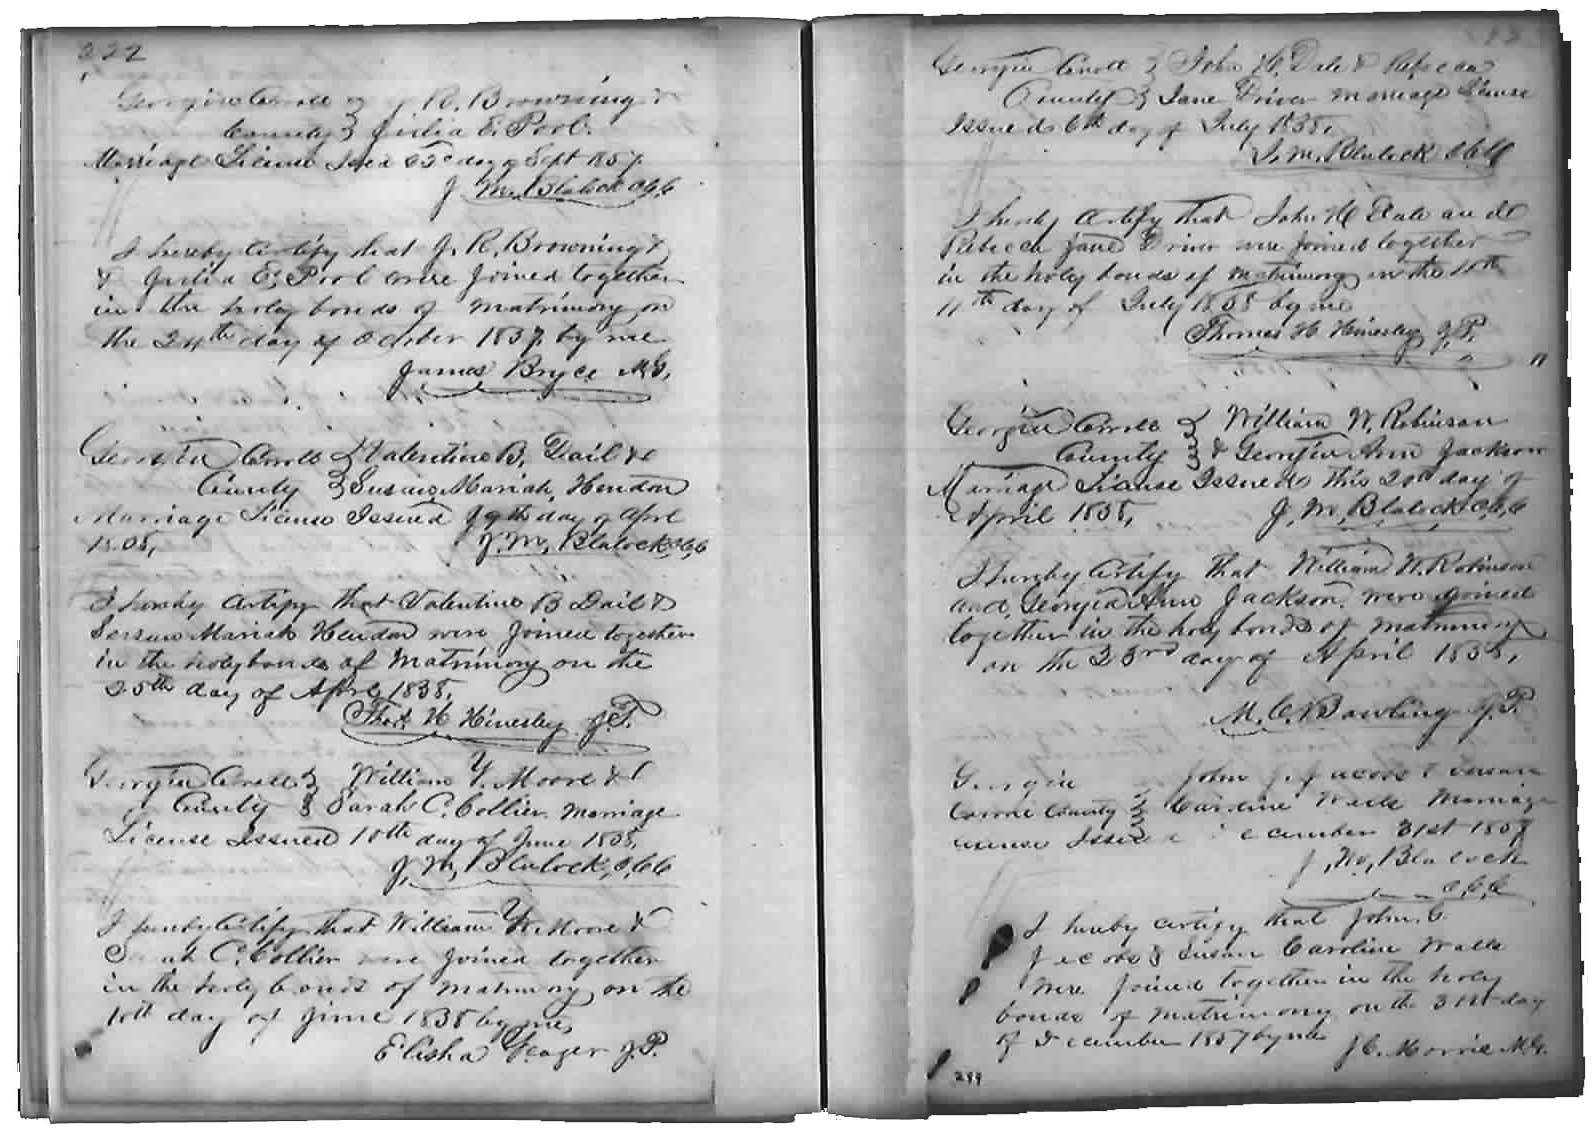 222
Georgia Carroll } J. R. Browning &
County } Julia E. Pool.
Marriage License day of Sept 1857.
J. M. Blalock C.C.O.
I hereby Certify that J. R. Browning &
& Julia E. Pool were Joined together
in the holy bonds of Matrimony on
the 24th day of October 1857 by me
James Bryce M.G.
Georgia Carroll } Valentine B. Dail &
County } Susan Mariah Hendon
Marriage License Issued 19th day of Aprl
J. M. Blalock
I hereby Certify that Valentine B Dail &
Mariah Hendon were Joined together
in the holy bonds of Matrimony on the
25th day of Aprl, 1858,
Thos H Hinesley J.P.
Georgia Carroll } William Y. Moore &
County } Sarah C. Collier Marriage
License Issued 10th day of June 1858,
J, M, Blalock,
I hereby Certify that William Y. Moore &
C. Collier were Joined together
in the holy bonds of matrimony on the
10th day of June 1858 by me,
Elisha Yeager J.P.
Georgia Carroll } John H. Dale & Rebecca
County } Jane Driver Marriage License
Issued 6th day of July 1858,
J. M. Blalock
I hereby Certify that John H Dale and
Rebecca Jane Driver were Joined together
in the holy bonds of matrimony on the
11th day of July 1858 by me
Thomas H Hinesley J.P.
Georgia Carroll } William W. Robinson
County } & Georgia Ann Jackson
Marriage License Issued this 20th day of
April 1858, J, M, Blalock
I hereby Certify that William W. Robinson
and Georgia Ann Jackson were Joined
together in the holy bonds of matrimony
on the 23rd day of April 1858,
M. C. Bowling J.P.
Georgia John J. Jacobs & Susan
County } Caroline Walls Marriage
Issued December 31st 1857
J, M, Blalock
C,C,O
I hereby certify that John
Jacobs & Susan Caroline Walls
were Joined together in the holy
bonds of Matrimony on the 31st day
of December 1857 by me J C. Morris M.G.
299